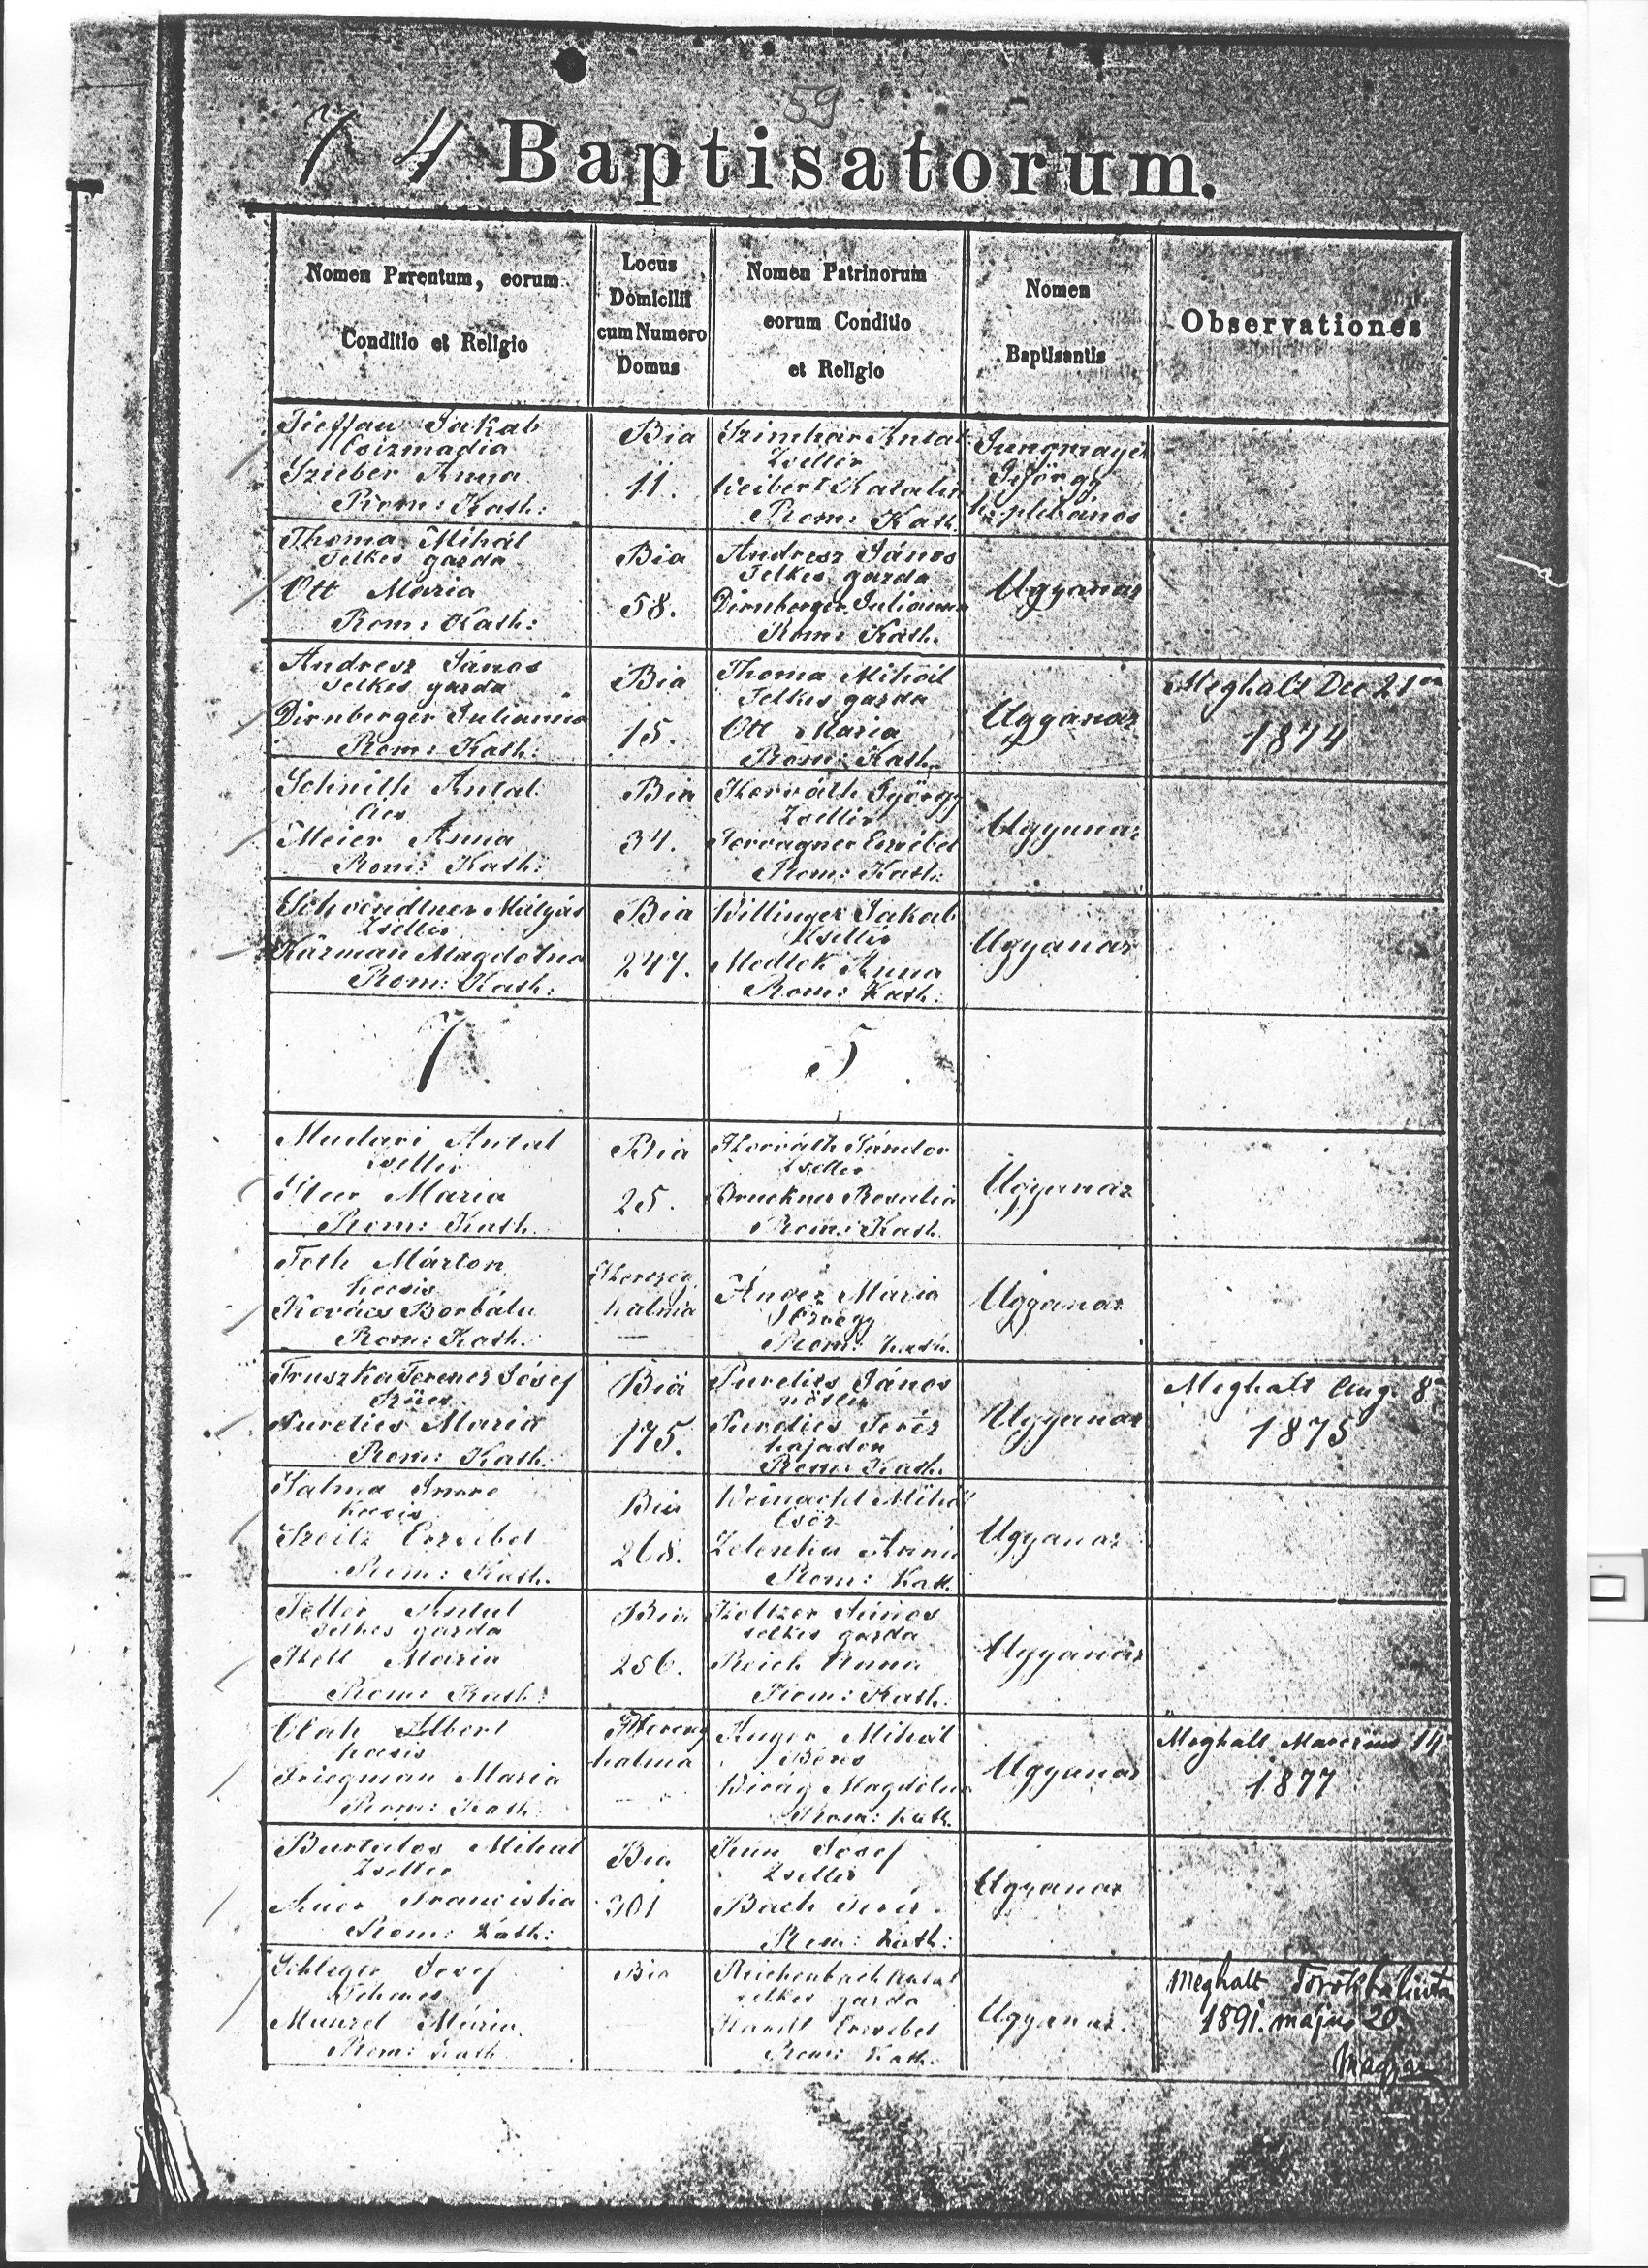 59
7 4 Baptisatorum.
Nomen Parentum, eorum
Conditio et Religio
Locus
Domicilii
cum Numero
Domus
Nomen Patrinorum
eorum Conditio
et Religio
Nomen
Baptisantis
Observationes
Jakab
Csizmadia
Szieber Anna
Rom: Kath:
Bia
11.
Antal
Zsellér
Weibert Katalin
Rom: Kath.
György
plébános
Thoma Mihál
Telkes gazda
Ott Maria
Rom: Kath:
Bia
58.
Andresz János
Telkes gazda
Dirnberger Julianna
Rom: Kath.
Ugyanaz
Andresz János
Telkes gazda
Dirnberger Julianna
Rom: Kath:
Bia
15.
Thoma Mihál
Telkes gazda
Ott Maria
Rom: Kath.
Ugyanaz
Meghalt Dec 21én
1874
Schmith Antal
Ács
Meier Anna
Rom: Kath:
Bia
34.
Horváth György
Zsellér
Erzsébet
Rom: Kath:
Ugyanaz
Schvindtner Mátyás
Zsellér
Kármán Magdolna
Rom: Kath:
Bia
247.
Willinger Jakab
Zsellér
Medlek Anna
Rom: Kath:
Ugyanaz
7
5
Madari Antal
Zsellér
Maria
Rom: Kath.
Bia
25.
Horváth Sándor
Zsellér
Bruckner Rosalia
Rom: Kath.
Ugyanaz
Toth Márton
kocsis
Kovács Borbála
Rom: Kath:
Herczeg
halma
Anger Mária
Özvegy
Rom: Kath.
Ugyanaz
Truszka Ferencz Jósef
Szücs
Purelics Maria
Rom: Kath.
Bia
175.
Purelics János
nőtlen
Purelics Teréz
hajadon
Rom: Kath.
Ugyanaz
Meghalt Aug. 8án
1875
Salma Imre
kocsis
Szeitz Erzsébet
Rom: Kath.
Bia
268.
Weinacht Mihál
Csősz
Zelenka Anna
Rom: Kath.
Ugyanaz
Antal
telkes gazda
Maria
Rom: Kath:
Bia
256.
Holtzer János
telkes gazda
Reich Anna
Rom: Kath.
Ugyanaz
Oláh Albert
kocsis
Friegman Maria
Rom: Kath
Herczeg
halma
Anger Mihál
Béres
Virág Magdolna
Rom: Kath.
Ugyanaz
Meghalt Marczius 14
1877
Bartalos Mihal
Zsellér
Auer Franciska
Rom: Kath:
Bia
301
Josef
Zsellér
Bach Teréz
Rom: Kath:
Ugyanaz
Schleger Josef
Maria
Rom: Kath
Bia
Reichenbach Antal
telkes gazda
Erzsébet
Rom: Kath.
Ugyanaz.
Meghalt Törökbálinton
1891. május 20.
Magyar